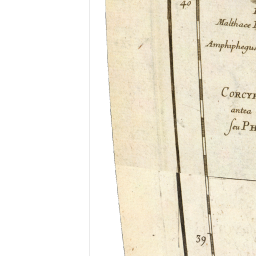 40
Malthace
Amphiphagus
CORCYR
antea
ſeu PH
39